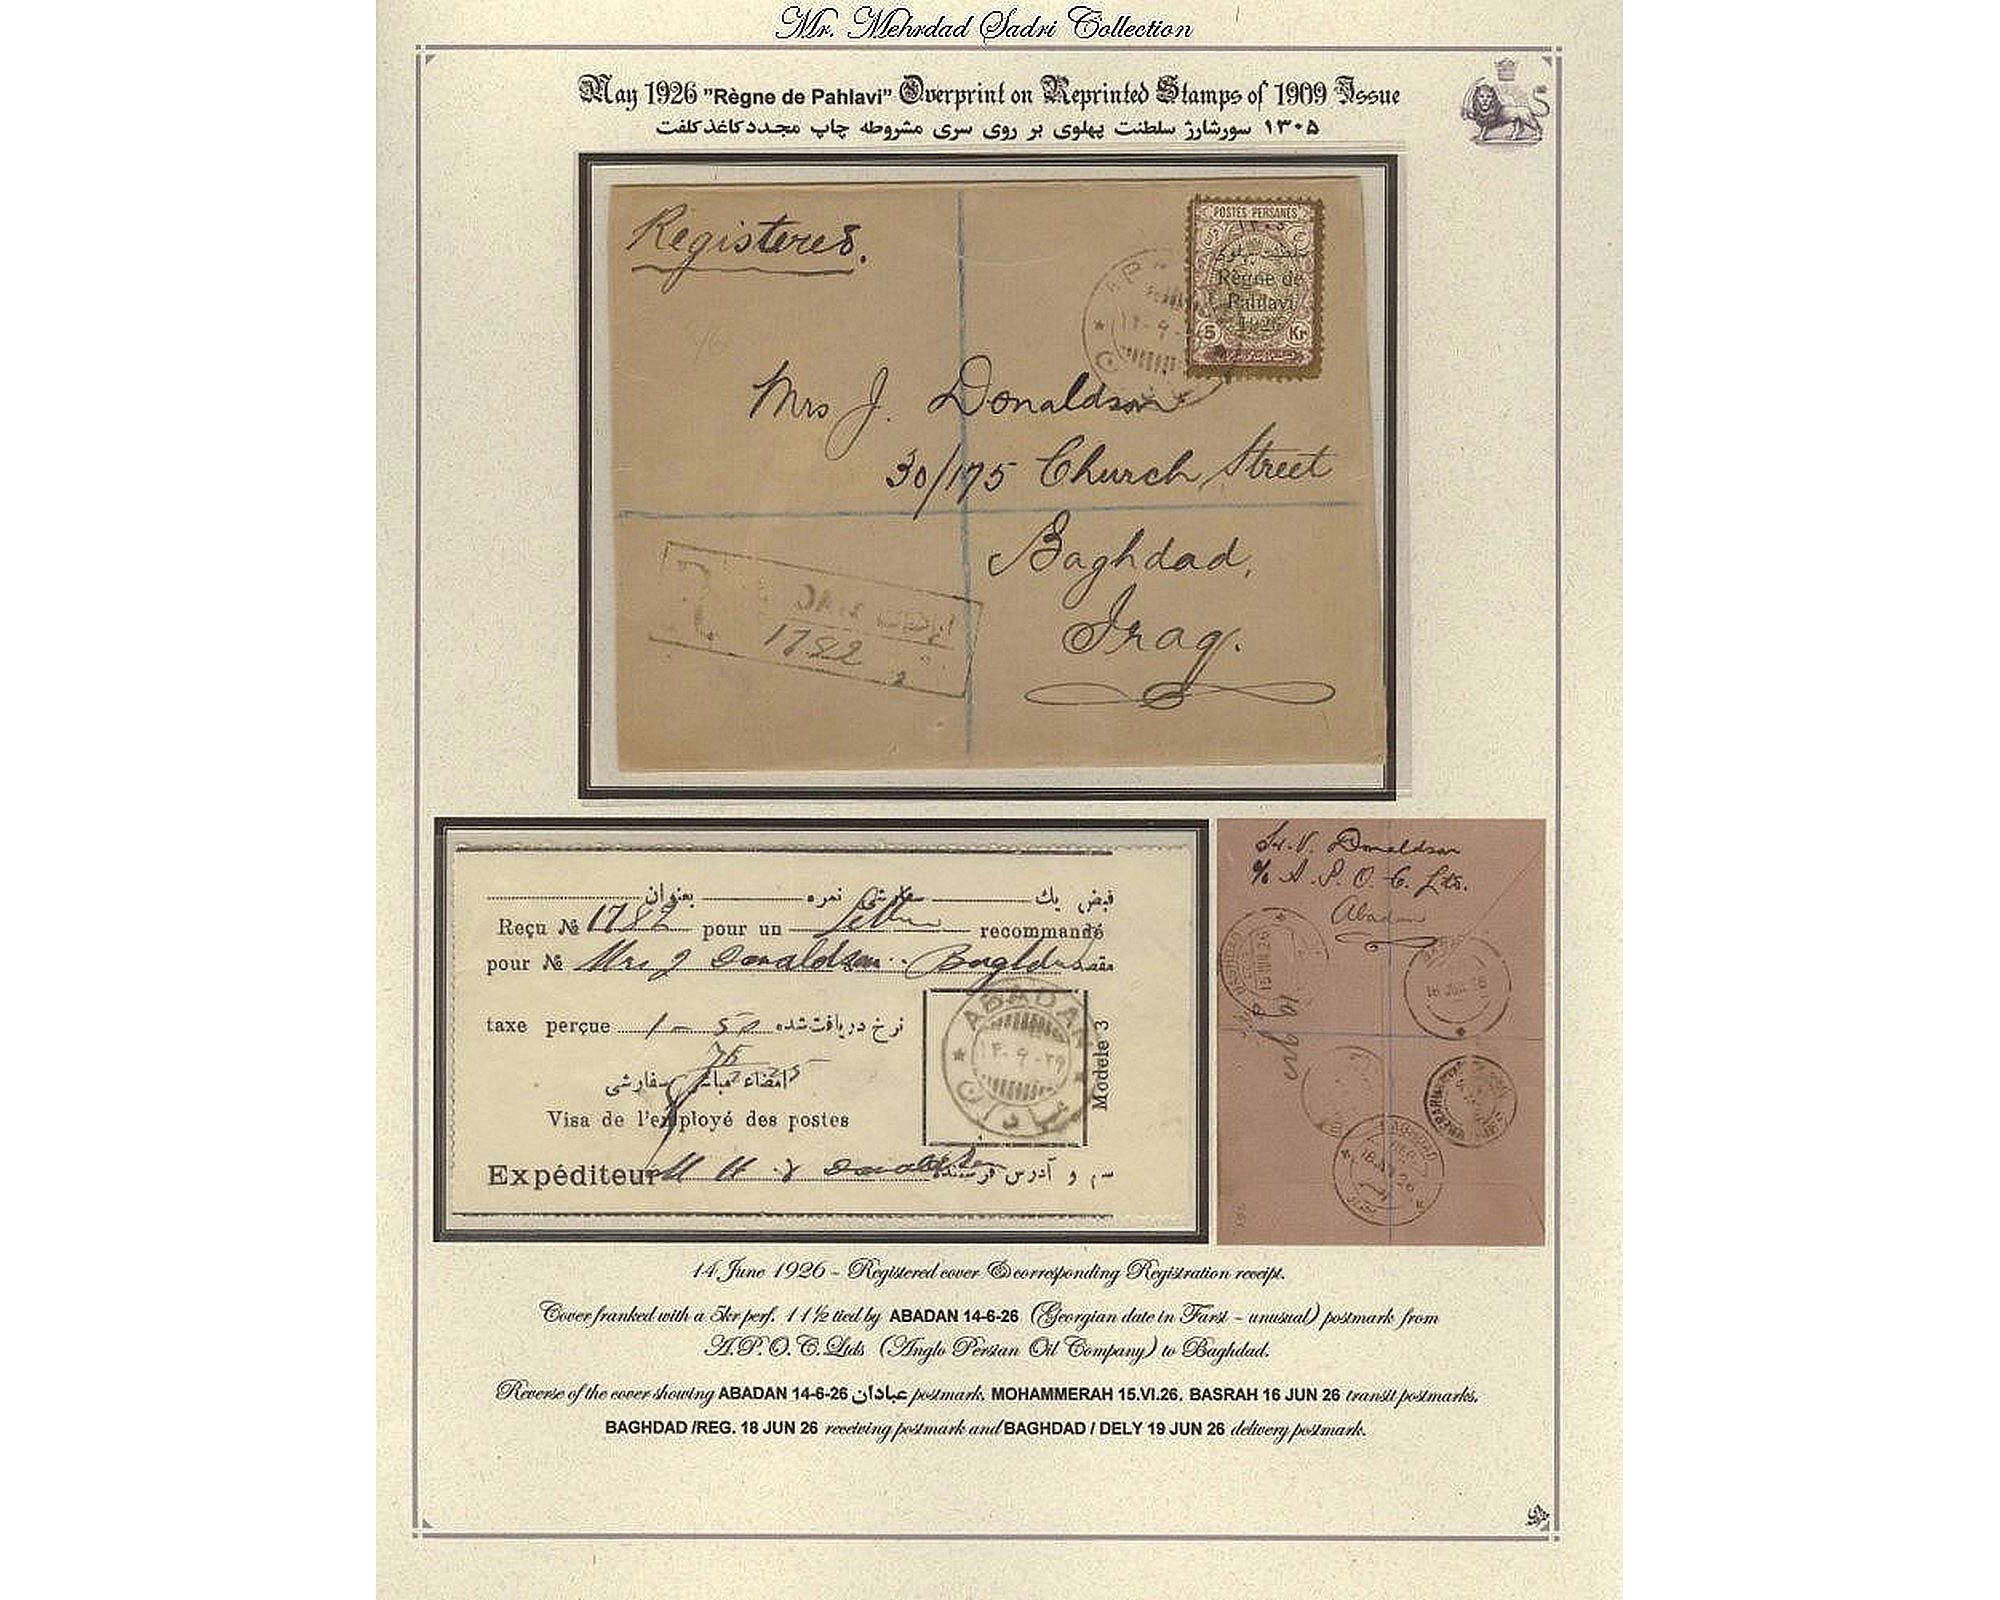 Mr. Mehrdad Sadri Collection
May 1926 "Règne de Pahlavi" Overprint on Reprinted Stamps of 1909 Issue
۱۳۰۵ سورشارژ سلطنت پهلوی بر روی سری مشروطه چاپ مجدد کاغذ کلفت
Registered.
POSTES PERSANES
۱۳۰۵
Règne de
Pahlavi
1926
5 Kr
Mrs J. Donaldson
30/175 Church Street
Baghdad,
Iraq.
R
1782
قبض یك سفارشی نمره بعنوان
Reçu № 1782 pour un letter recommandé
pour № Mrs J Donaldson Baghdad مقصد
taxe perçue 1 - 50 نرخ دریافت شده
امضاء مباشر سفارشی
Visa de l'employé des postes
Expéditeur Donaldson اسم و آدرس فرستنده
ABADAN
۱۴-۶-۲۶
عبادان
Modele 3
Donaldson
c/o A. P. O. C. Ltd.
Abadan
BAGHDAD
15 JUN 26
16 JUN 26
BAGHDAD
18 JUN 26
14 June 1926 - Registered cover & corresponding Registration receipt.
Cover franked with a 5kr perf. 11½ tied by ABADAN 14-6-26 (Georgian date in Farsi - unusual) postmark from
A.P.O.C.Ltds (Anglo Persian Oil Company) to Baghdad.
Reverse of the cover showing ABADAN 14-6-26 عبادان postmark, MOHAMMERAH 15.VI.26, BASRAH 16 JUN 26 transit postmarks,
BAGHDAD /REG. 18 JUN 26 receiving postmark and BAGHDAD / DELY 19 JUN 26 delivery postmark.